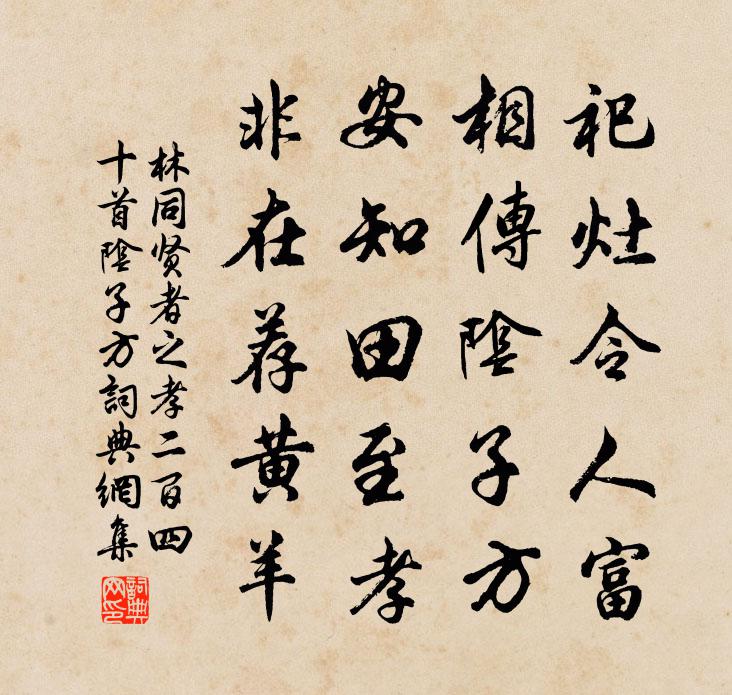 祀灶令人富
相傳陰子方
安知田至孝
非在荐黄羊
林同贤者之孝二百四
十首陰子方詞典網集
詞典
网印